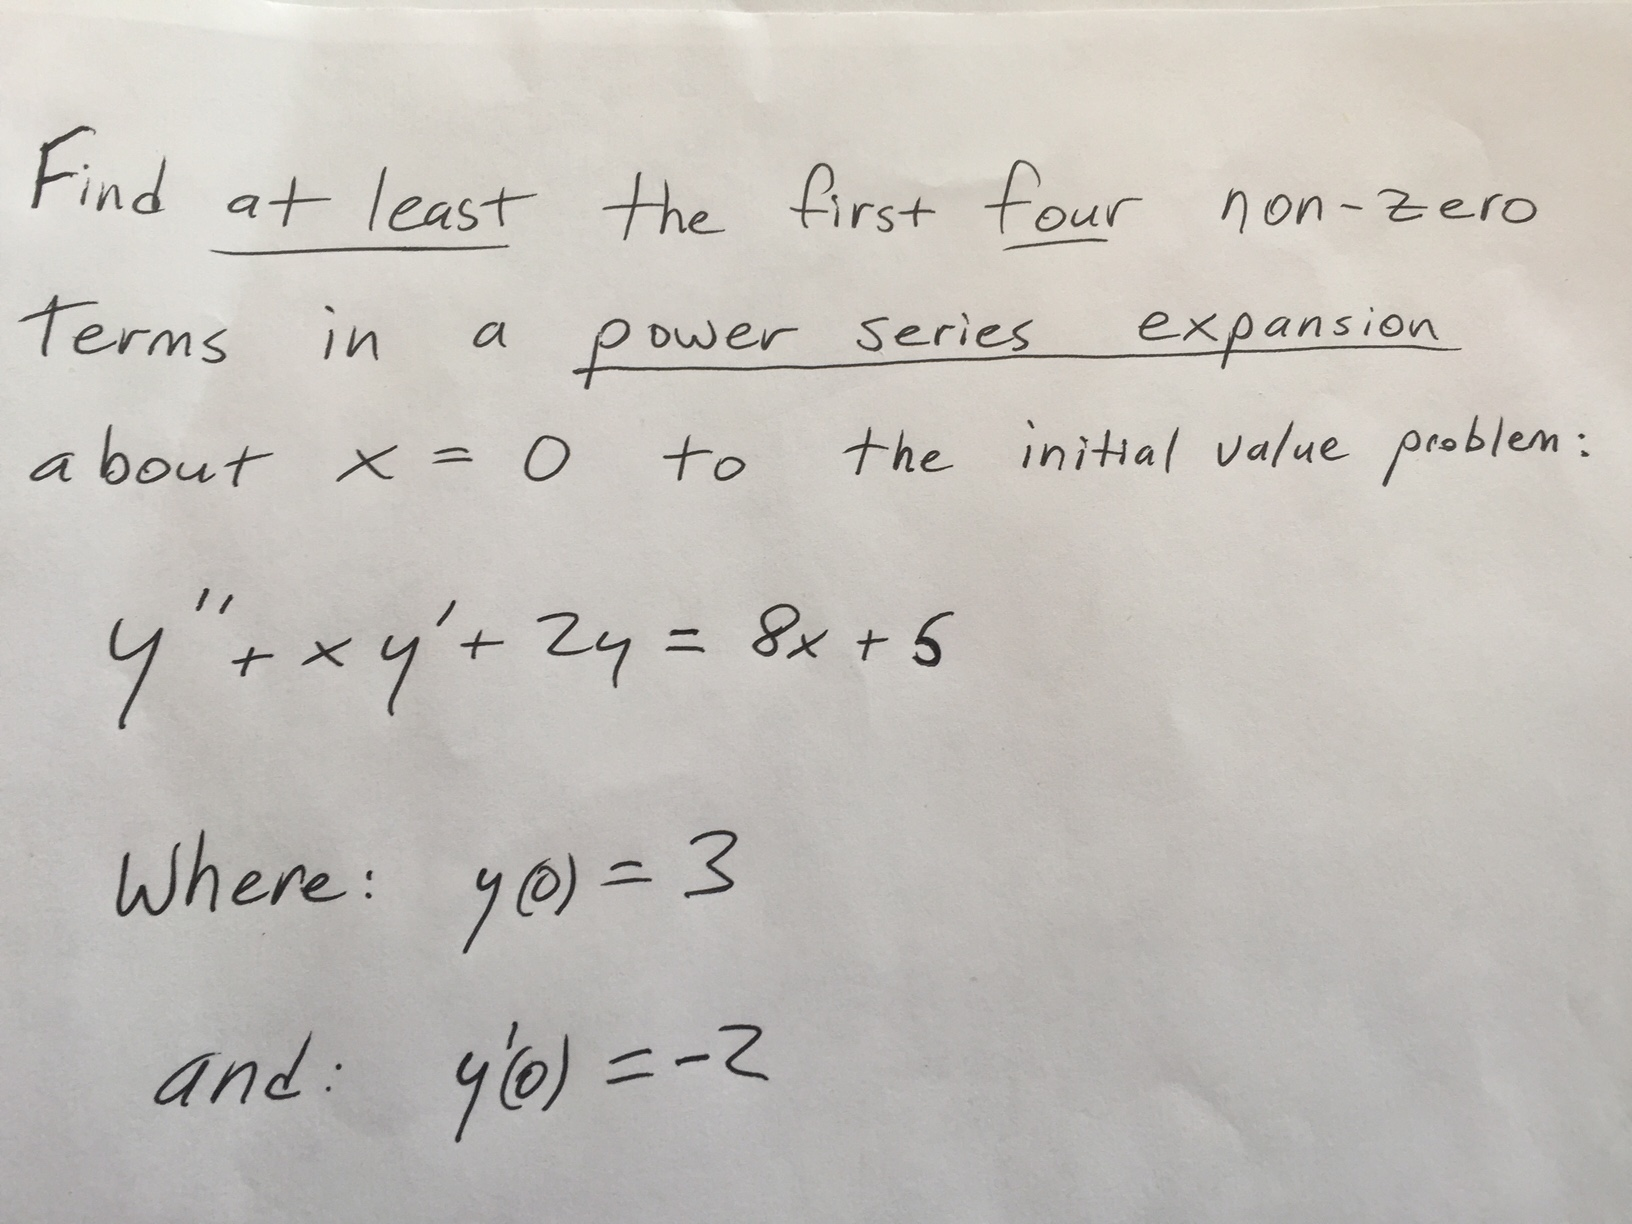 Find at least the first four non-zero
terms in a power series expansion
about x = 0 to the initial value problem:
y'' + xy' + 2y = 8x + 5
Where: y(0) = 3
and: y'(0) = -2